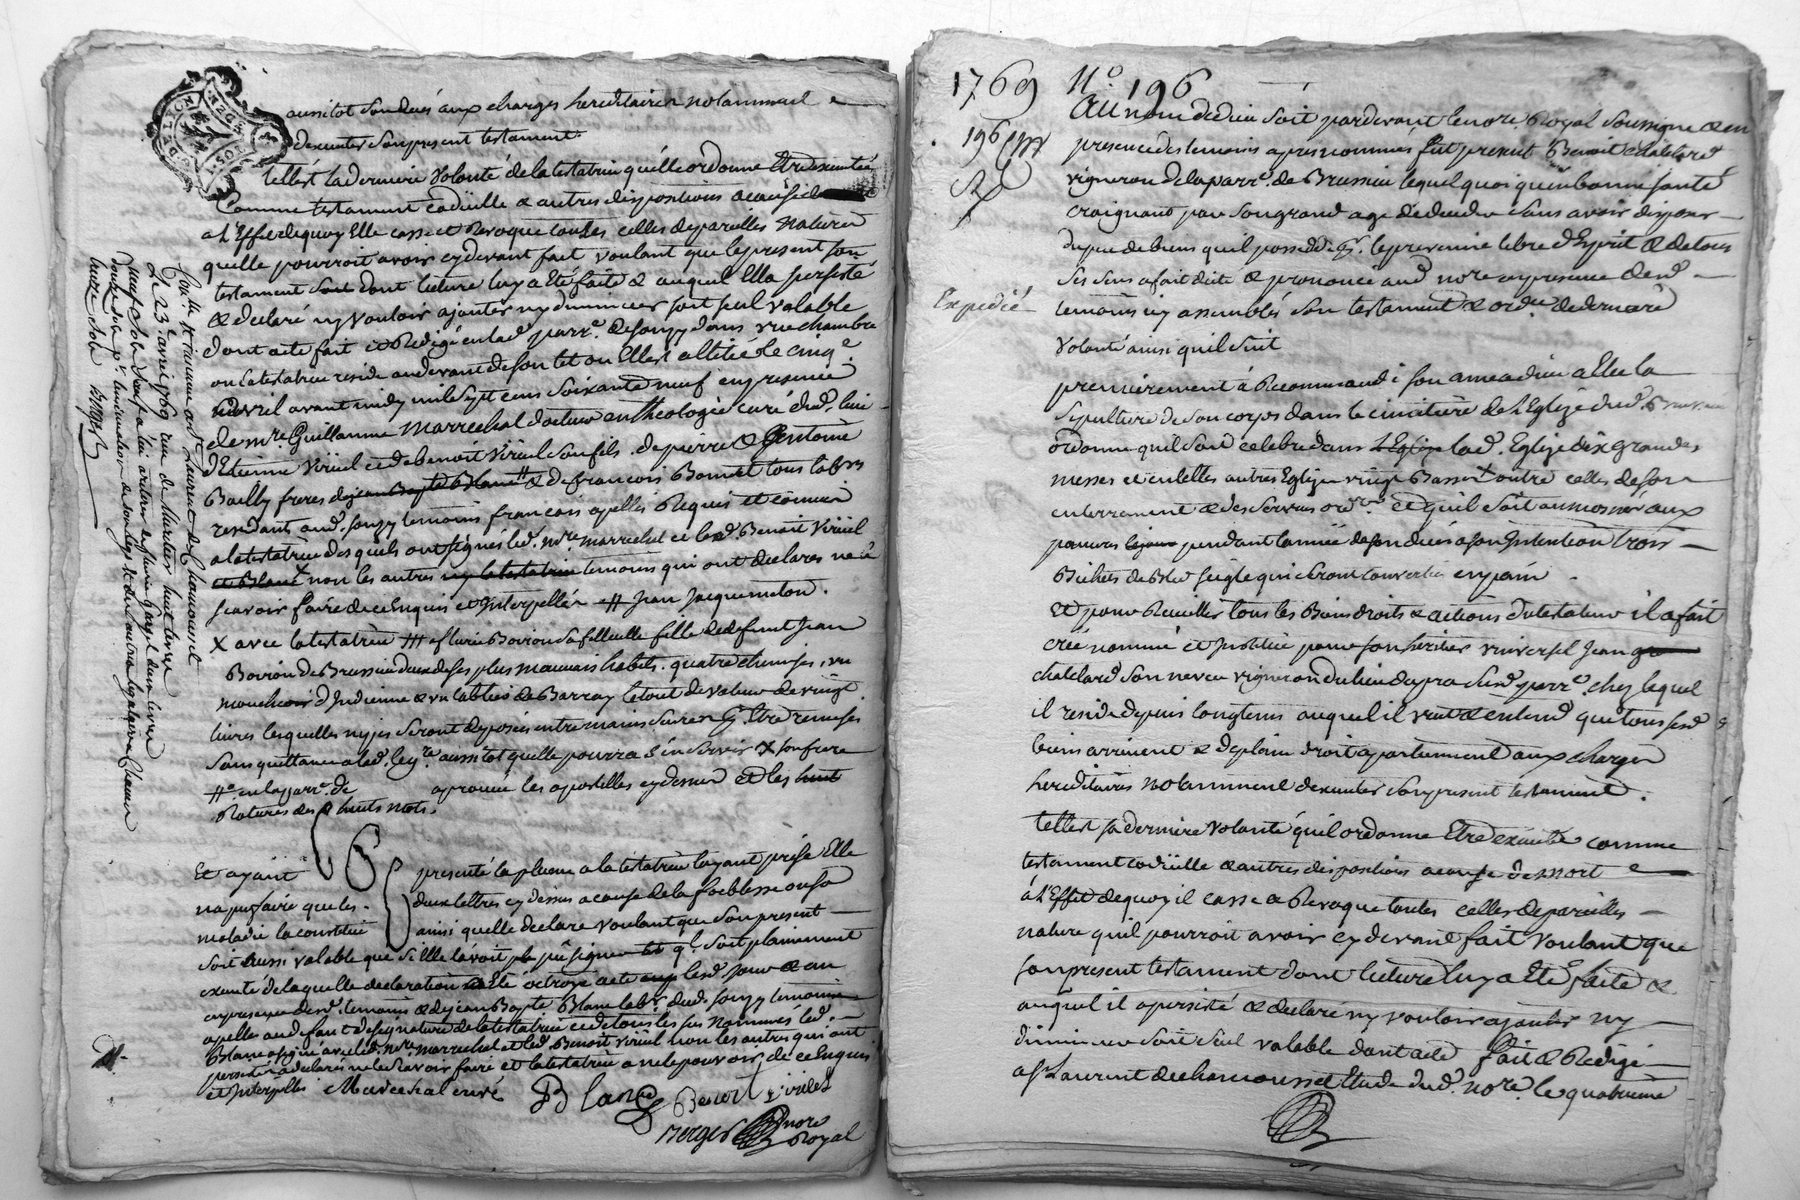 aussitot son decés aux charges hereditaires notamment
dexecuter son present testament
telle est la derniere volonté de la testatrice qu'elle ordonne etre executée
comme testament codicille & autres dispositions a cause de
a l'Effet de quoy Elle casse et Revoque toutes celles de pareilles natures
quelle pourroit avoir cy devant fait voulant que le present son
testament soit dont lecture luy a eté faite & auquel Ella persisté
& declaré ny vouloir ajouter ny diminuer soit seul valable
dont acte fait et Redigé en lad. parr.e de souzy dans une chambre
ou la testatrice reside au devant de son lit ou Elle est allitée le cinq.e
avril avant midy mil sept cens soixante neuf en presence
de mr. Guillaume Marrechal docteur en theologie curé dud. lieu
d'Etienne Viricel et de benoit Viricel son fils, de pierre & Antoine
Bailly freres de jean Bapte Blanc & de francois Bonnet tous labrs
residants aud. souzy temoins francois apellés Requis et connus
a la testatrice desquels ont signés led. mre. marrechal et led. Benoit Viricel
et Blanc X non les autres ny la testatrice temoins qui ont declarés ne le
scavoir faire de ce Enquis et Interpellés # Jean Jacquemeton.
X avec la testatrice ### fleurie Boiron sa filleulle fille de defunt Jean
Boiron de Brussieu deux de ses plus mauvais habits, quatre chemises, un
mouchoir d'Indienne & un tablier de Barray le tout de valeur de vingt
livres lesquelles nypes seront deposés entre mains seures pr. Etre remises
sans quittance a lad. leg.re aussitot quelle pourra s'en servir X son frere
#e en la parr.e de aprouvé les apostilles cy dessus et les huit
Ratures des huits mots.
Et ayant presenté la plume a la testatrice layant prise Elle
na pu faire que les deux lettres cy dessus a cause de la foiblesse ou sa
maladie la constitue ainsi quelle declare voulant que son present
soit aussi valable que si Elle lavoit pu signer et qu'il soit plainement
executé de laquelle declaration a eté octroyé acte lesd. jour & an
en presence desd. temoins & de jean Bapte Blanc labr. dud. souzy temoins
apellé au defaut de signature de la testatrice et de tous les sus nommés led.
Blanc a signé avec led. mre. marrechal et led. Benoit Viricel non les autres qui ont
persisté a declarer ne le scavoir faire et la testatrice a ne le pouvoir de ce Enquis
et Interpellés Marrechal curé Blanc Benoit Viricel
Berger nore Royal
Con.lle & insinué a St Laurent de Chamousset
le 23.e avril 1769 rue de Mortier huit livres
neuf sols
douze sols
treize sols Berger
1769 N.o 196
196
Expedié
Au nom de dieu soit pardevant le nore. Royal soussigné & en
presence des temoins apres nommés fut present Benoit Chatelard
vigneron de la parr.e de Brussieu lequel quoi quen bonne santé
craignant par son grand age de deceder sans avoir disposé
du peu de biens quil possede pr. le prevenir libre d'Esprit & de tous
ses sens a fait dicté & prononcé aud. nore en presence desd.
temoins icy assemblés son testament & ord.ce de derniere
volonté ainsi quil suit
premierement à Recommandé son ame a dieu a Elu la
sepulture de son corps dans le cimetiere de l'Eglise dud. Brussieu
ordonne quil soit celebré dans l'Eglize lad. Eglize dix grandes
messes et en telles autres Eglizes vingt Basses X outre celles de son
enterrement & des services ord.res et quil soit aumosné aux
pauvres pendant lannée de son decés a son Intention trois
Bichets de Bled seigle qui seront convertis en pain.
Et pour Recueillir tous les Biens droits & actions du testateur il a fait
créé nommé et Institué pour son héritier universel Jean
chatelard son neveu vigneron du lieu du pra susd. parr.e chez lequel
il reside depuis longtems auquel il veut & entend que tous sesd.
biens arrivent & de plain droit apartiennent aux charges
hereditaires notamment dexecuter son present testament.
telle est sa derniere volonté quil ordonne Etre executé comme
testament codicille & autres dispositions a cause de mort
à l'Effet de quoy il casse & Revoque toutes celles de pareilles
nature quil pourroit avoir cy devant fait voulant que
son present testament dont lecture luy a Eté faite &
auquel il a persisté & declaré ny vouloir ajouter ny
diminuer soit seul valable dont acte fait & Redigé
a St Laurent de chamousset Etude dud. nore. le quatrieme